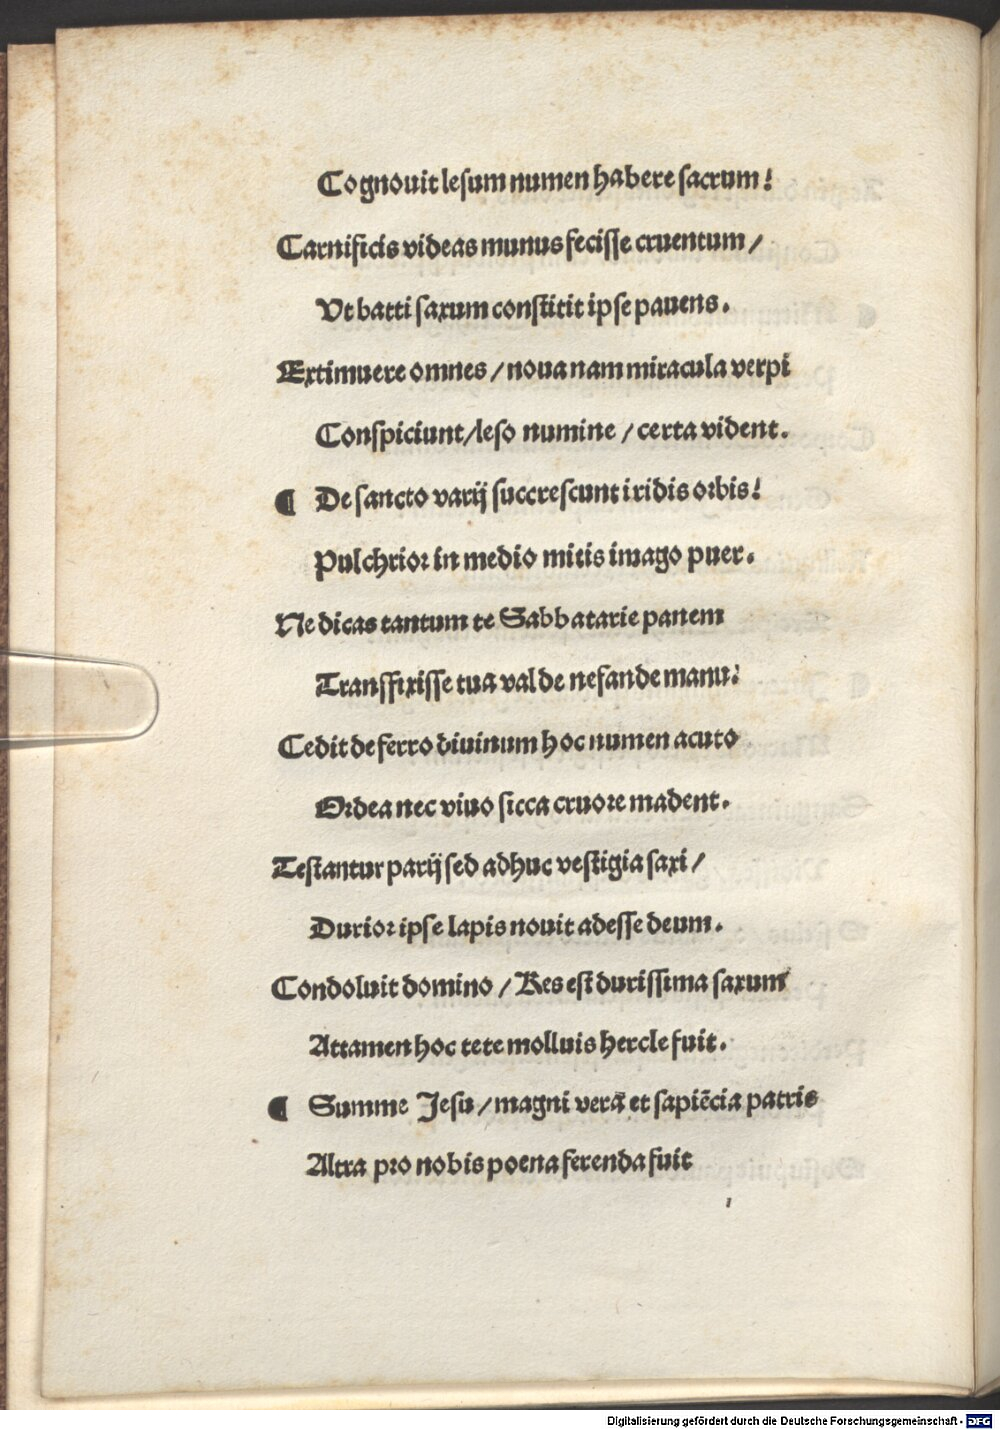 Cognouit lesum numen habere sacrum!
Carnificis videas munus fecisse cruentum /
Vt batti saxum constitit ipse pauens.
Extimuere omnes / noua nam miracula verpi
Conspiciunt / leso numine / certa vident.
¶ De sancto varij succrescunt iridis orbis!
Pulchrior in medio mitis imago puer.
Ne dicas tantum te Sabbatarie panem
Transfixisse tua valde nefande manu:
Cedit de ferro diuinum hoc numen acuto
Ordea nec viuo sicca cruore madent.
Testantur parij sed adhuc vestigia saxi /
Durior ipse lapis nouit adesse deum.
Condoluit domino / Res est durissima saxum
Attamen hoc te te molluis hercle fuit.
¶ Summe Jesu / magni verā et sapiēcia patris
Altra pro nobis poena ferenda fuit
Digitalisierung gefördert durch die Deutsche Forschungsgemeinschaft - DFG